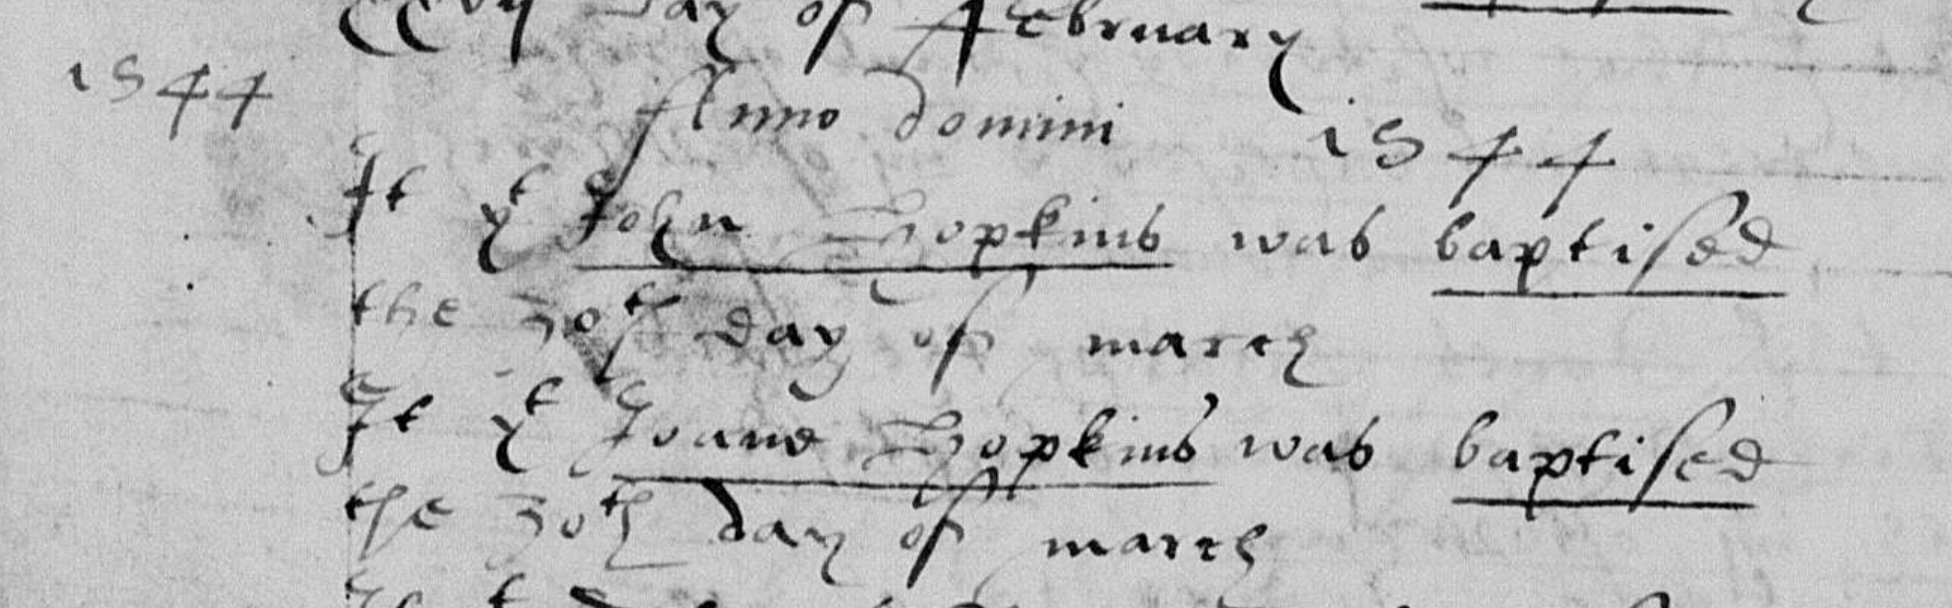 xxvij day of February
1544
Anno domini 1544
It yt John Hopkins was baptised
the 30th day of march
It yt Joane Hopkins was baptised
the 30th day of march
It yt